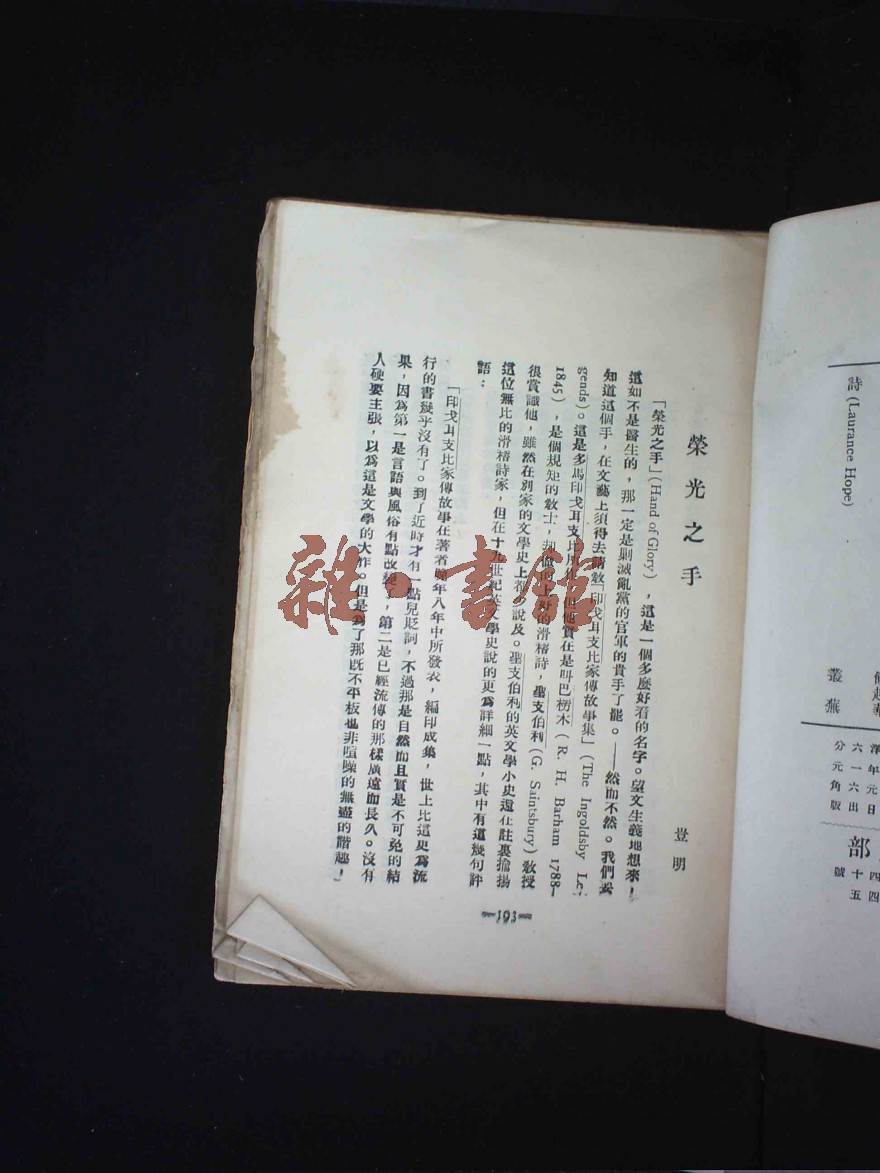 榮光之手
豈明
「榮光之手」(Hand of Glory)，這是一個多麼好看的名字。望文生義地想來，
這如不是醫生的，那一定是剿滅亂黨的官軍的貴手了罷。——然而不然。我們要
知道這個手，在文藝上須得去請教「印戈耳支比家傳故事集」(The Ingoldsby Le-
gends)。這是多馬印戈耳支比所作，但他實在是叫巴楞木(R. H. Barham 1788-
1845)，是個規矩的教士，却做上好的滑稽詩，聖支伯利(G. Saintsbury)教授
很賞識他，雖然在別家的文學史上很少說及。聖支伯利的英文學小史還在註裏揄揚
這位無比的滑稽詩家，但在十九世紀英文學史說的更爲詳細一點，其中有這幾句評
語：
「印戈耳支比家傳故事在著者晚年八年中所發表，編印成集，世上比這更爲流
行的書幾乎沒有了。到了近時才有一點兒貶詞，不過那是自然而且實是不可免的結
果，因爲第一是言語與風俗有點改變了，第二是已經流傳的那樣廣遠而長久。沒有
人硬要主張，以爲這是文學的大作。但是爲了那旣不平板也非喧噪的無盡的諧趣，
—193—
詩(Laurance Hope)
叢蕪
部
四四
十五
號
雜·書館